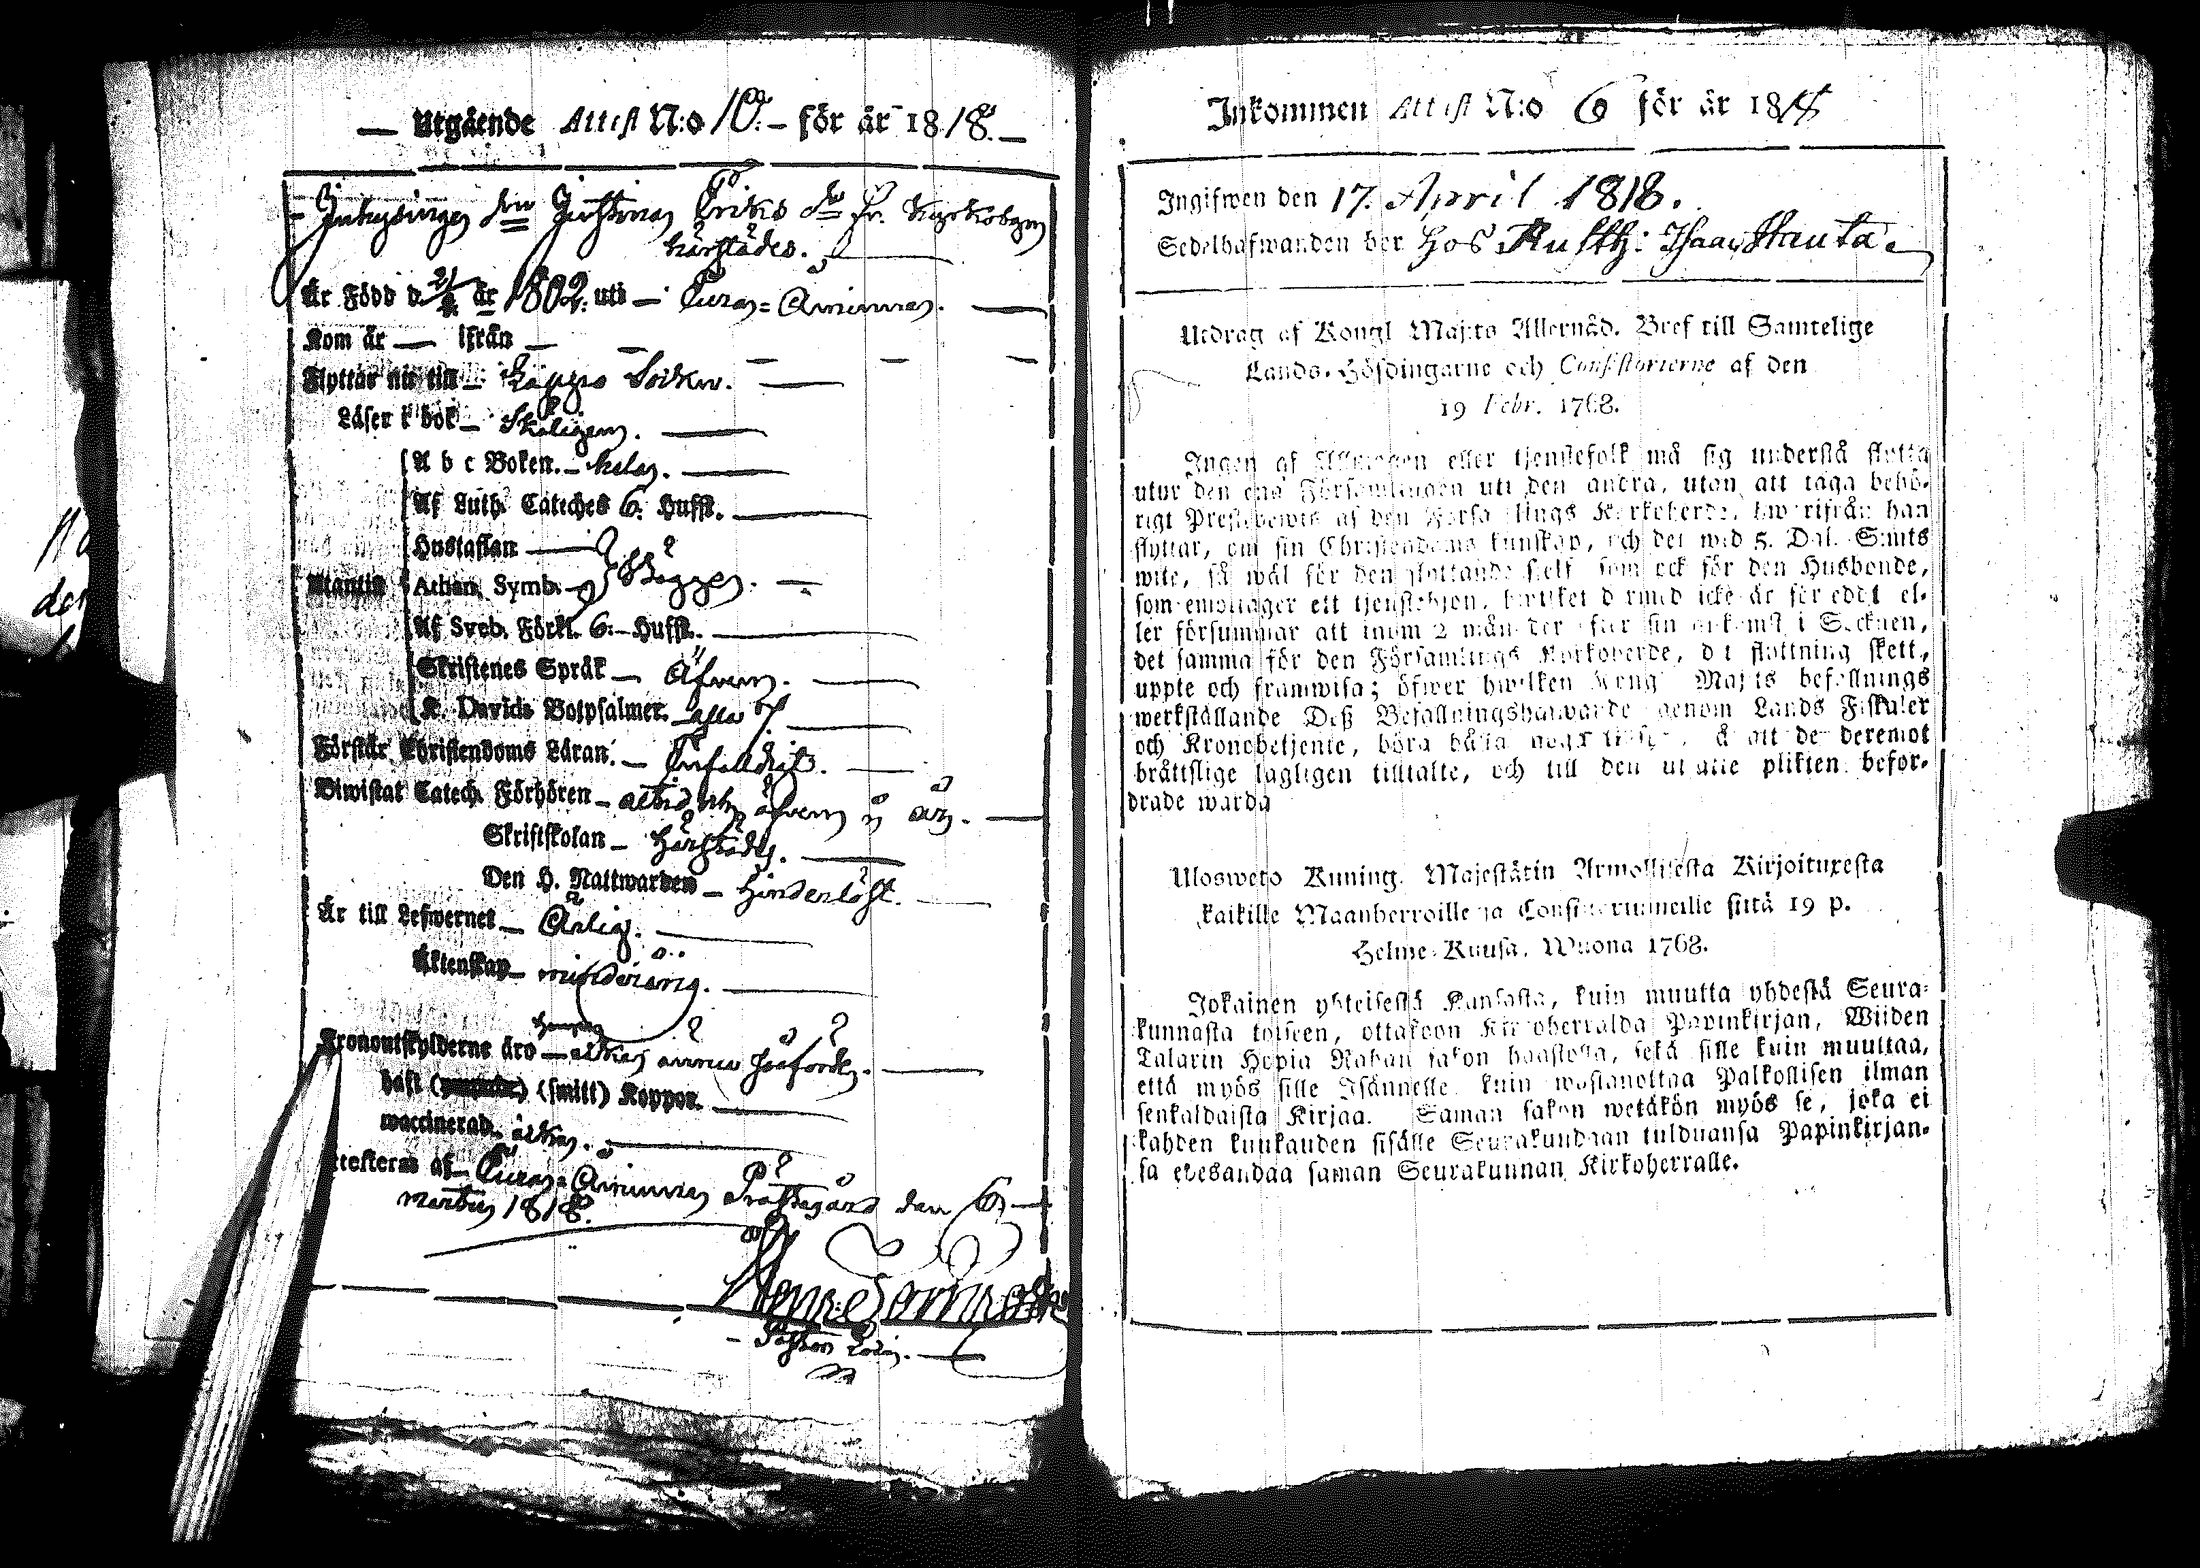 Utgående Attest N:o 10. för år 1818.
Inhysingen Justina Eriks fr. Kyrkobyn
härstädes.
Är Född d. år 1802. uti Eura-Åminne.
Kom år — ifrån —
Flyttar nu till Socken.
Läser i bok Skäligen.
A b c Boken. hela.
Af Luth. Cateches 6. Hufst.
Hustaflan
Utantill Athan. Symb. Begge.
Af Sveb. Förkl. 6. Hufst.
Skriftenes Språk Äfven.
K. Davids Botpsalmer. alla 7.
Förstår Christendoms Läran. Enfaldigt.
Biwistat Catech. Förhören altid, äfven i år.
Skriftskolan Härstädes.
Den H. Nattwarden Hinderlöst.
Är till Lefwernet Ärlig.
Äktenskap minderårig.
Kronoutskylderne äro
haft (smitt) Koppor.
waccinerad.
Attesteras af Eura-Åminne Prästegård den 6
Martii 1818.
Pastor
Inkommen Attest N:o 6 för år 1818
Ingifwen den 17. April 1818.
Sedelhafwanden bor hos Rusth: Isaac
Utdrag af Kongl Maj:ts Allernåd. Bref till Samtelige
Lands-Höfdingarne och Consistorierne af den
19 Febr. 1768.
Ingen af Allmogen eller tjenstefolk må sig understå flytta
utur den ena Församlingen uti den andra, utan att taga behö-
rigt Prestebewis af den Församlings Kyrkoherde, hwarifrån han
flyttar, om sin Christendoms kunskap, och det wid 5. Dal. S:mts
wite, så wäl för den flyttande sielf som ock för den Husbonde,
som emottager ett tjenstehjon, hwilket dermed icke är försedd el-
ler försummar att inom 2 månader efter sin ankomst i Socknen,
det samma för den Församlings Kyrkoherde, dit flyttning skett,
uppte och framwisa; öfwer hwilken Kongl Maj:ts befallnings
werkställande Deß Befallningshafwande genom Lands Fiskaler
och Kronobetjente, böra hålla noga tillsyn, så att de deremot
bråttslige lagligen tilltalte, och till den utsatte plikten befor-
drade warda
Ulosweto Kuning. Majestätin Armollisesta Kirjoituxesta
kaikille Maanherroille ja Consistoriumeille siitä 19 p.
Helme-Kuusa, Wuonna 1768.
Jokainen yhteisestä Kansasta, kuin muutta yhdestä Seura-
kunnasta toiseen, ottakoon Kirkoherralda Papinkirjan, Wiiden
Talarin Hopia Rahan sakon haastolla, sekä sille kuin muuttaa,
että myös sille Isännelle, kuin wastanottaa Palkollisen ilman
senkaldaista Kirjaa. Saman sakon wetäkön myös se, joka ei
kahden kuukauden sisälle Seurakundaan tulduansa Papinkirjan-
sa edesandaa saman Seurakunnan Kirkoherralle.